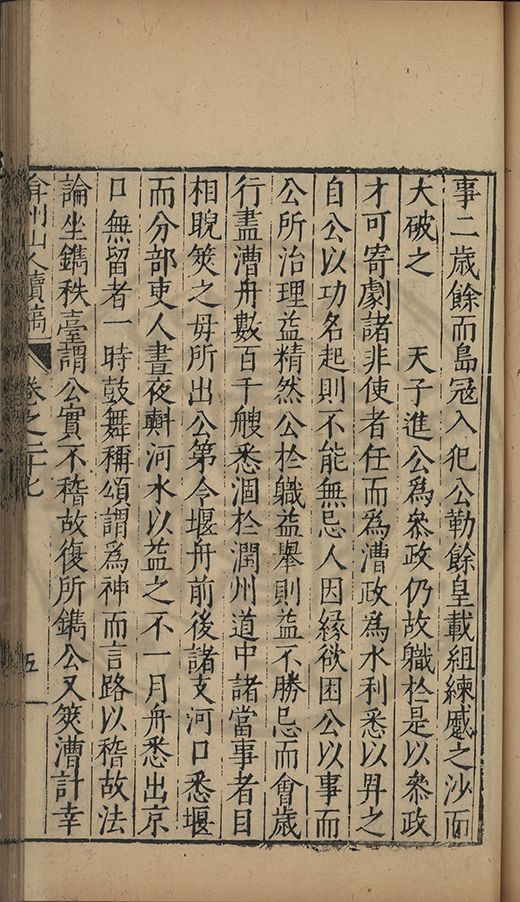 事二歲餘而島冦入犯公勒餘皇載組練蹙之沙而
大破之　天子進公爲叅政仍故職於是以叅政
才可寄劇諸非使者任而爲漕政爲水利悉以畀之
自公以功名起則不能無忌人因縁欲困公以事而
公所治理益精然公於職益舉則益不勝忌而會歳
行盡漕舟數百千艘悉涸於潤州道中諸當事者目
相睨筴之毋所出公第令堰舟前後諸支河口悉堰
而分部吏人晝夜㪺河水以益之不一月舟悉出京
口無留者一時鼓舞稱頌謂爲神而言路以稽故法
論坐鐫秩臺謂公實不稽故復所鐫公又筴漕計幸
弇州山人續稿　卷之二十七　五